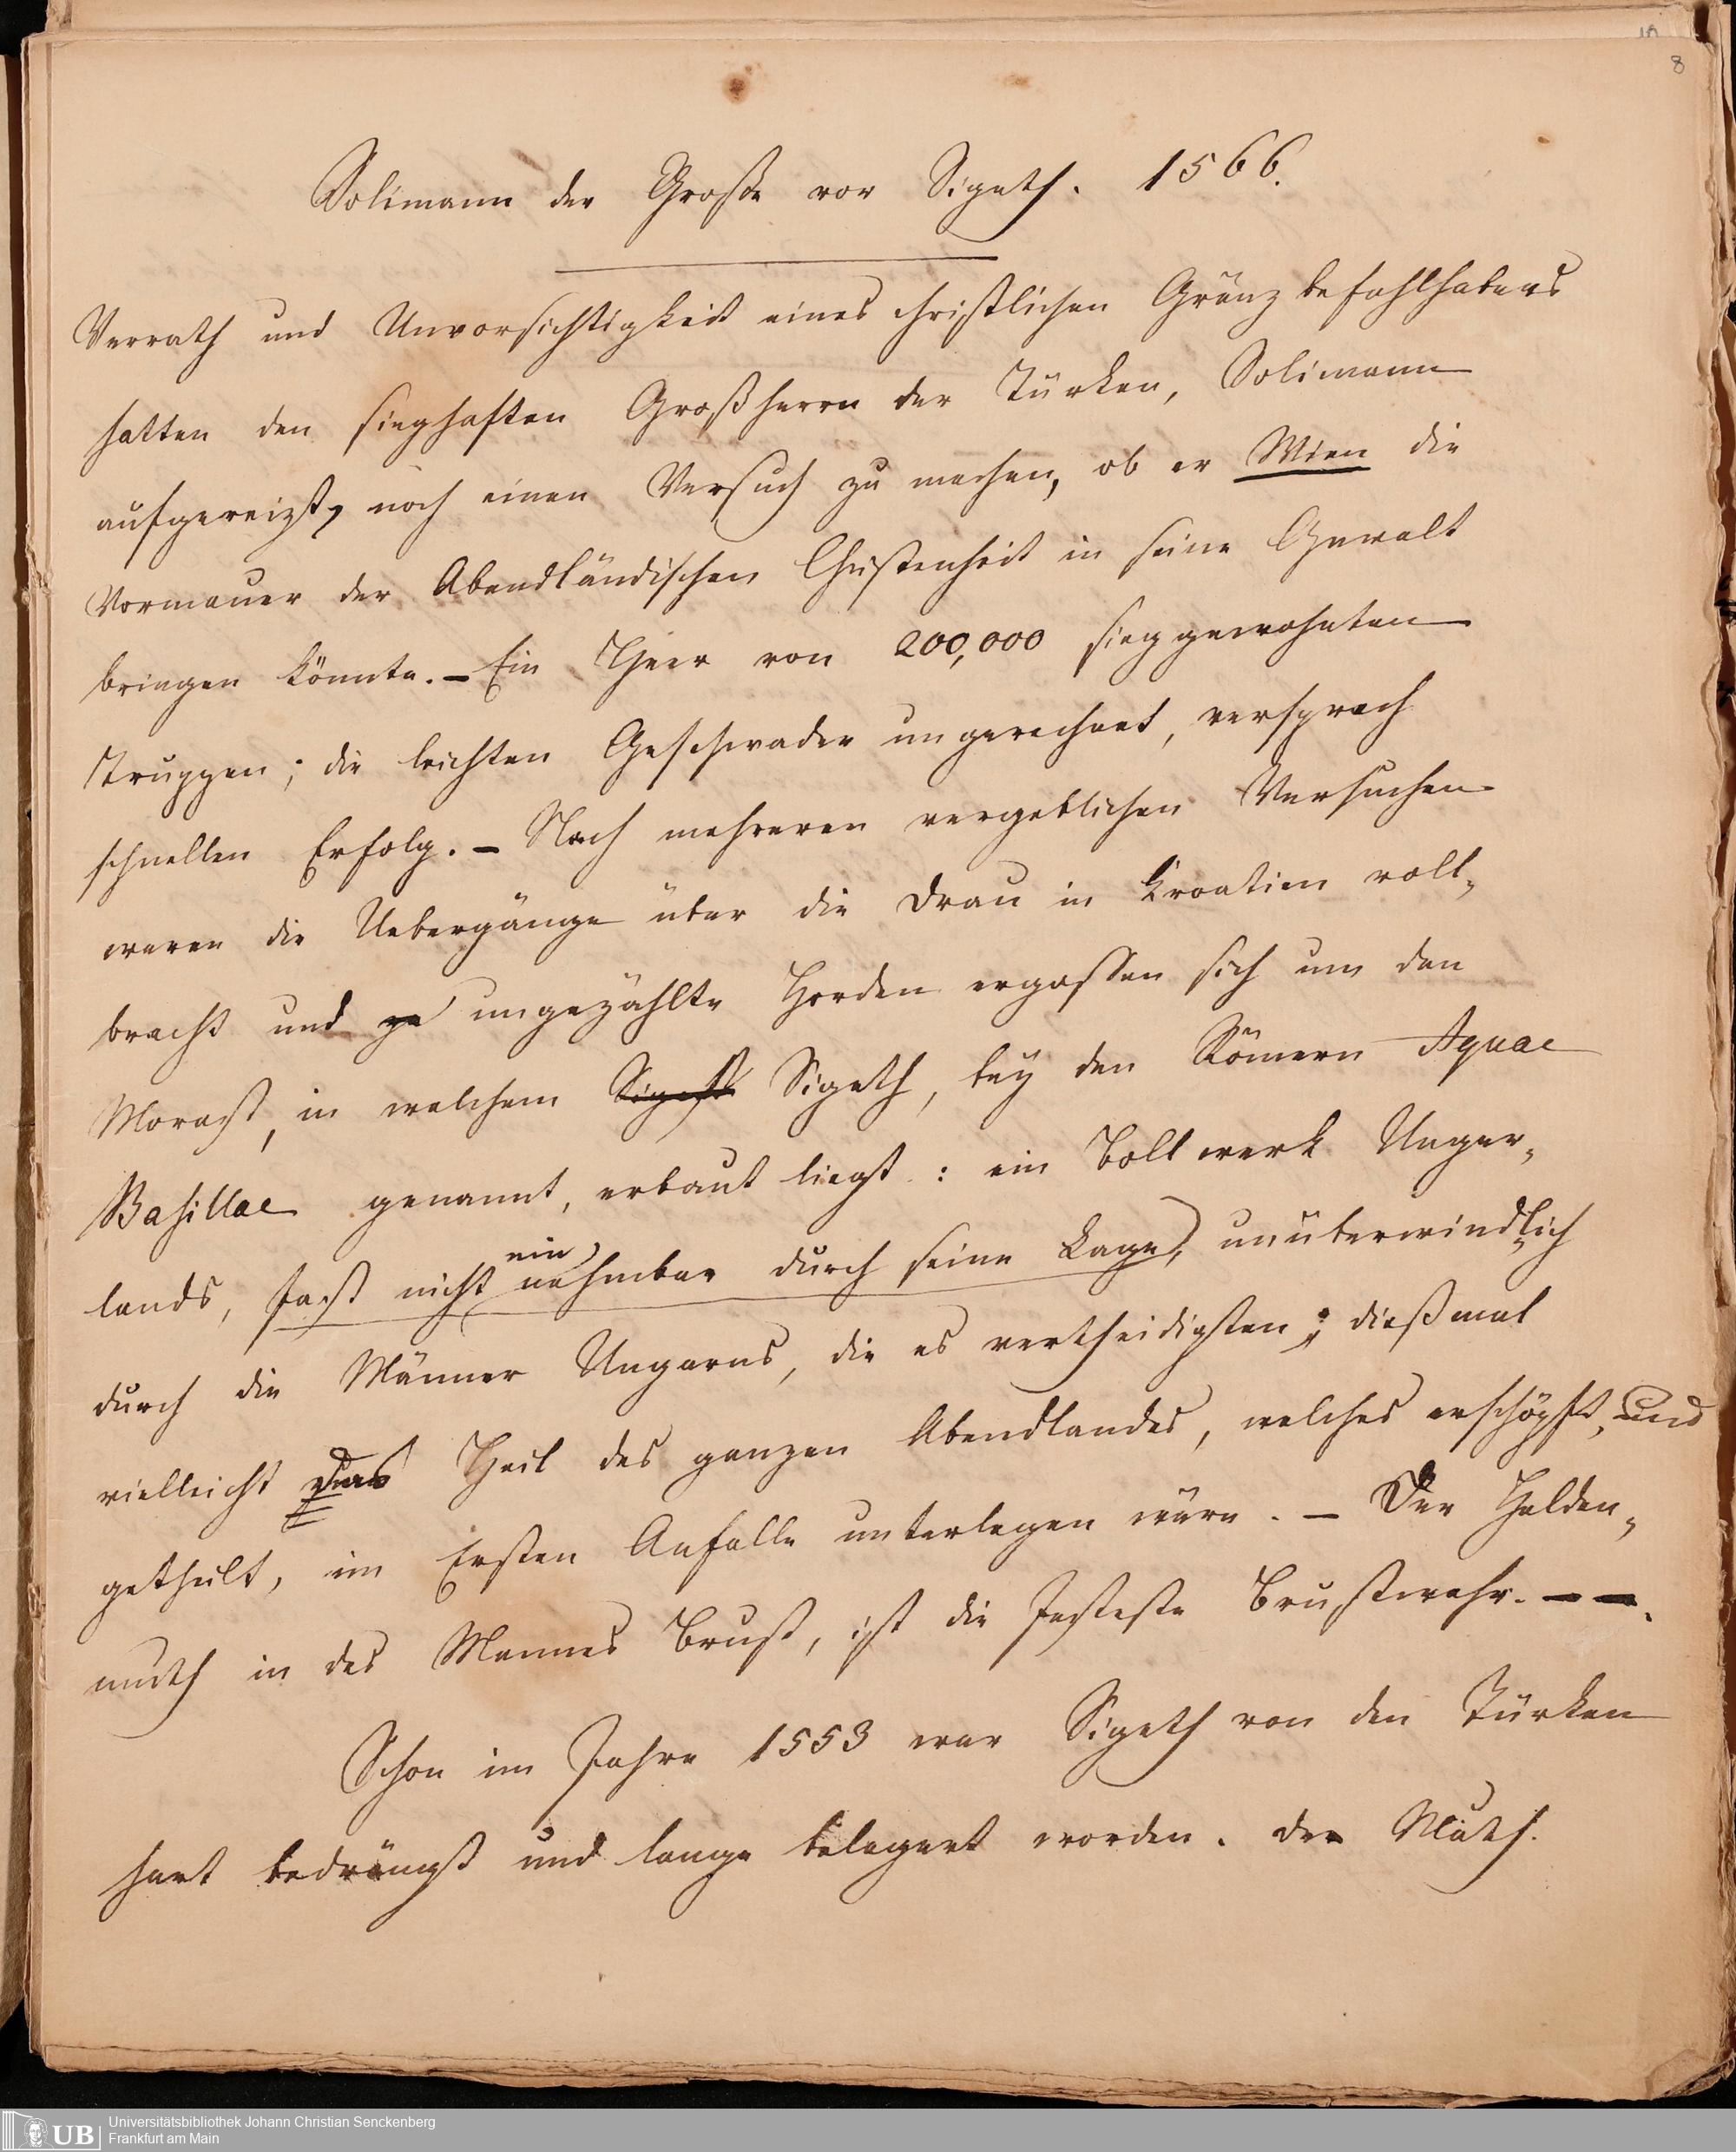 10
8
Solimann der Große vor Sigeth. 1566.
Verrath und Unvorsichtigkeit eines christlichen Gränzbefehlhabers
hatten den sieghaften Großherrn der Türken, Solimann
aufgereizt, noch einen Versuch zu machen, ob er Wien die
Vormauer der Abendländischen Christenheit in seine Gewalt
bringen könnte. – Ein Heer von 200,000 sieggewohnten
Truppen; die leichten Geschwader ungerechnet, versprach
schnellen Erfolg. – Nach mehreren vergeblichen Versuchen
waren die Uebergänge über die Drau in Kroatien voll-
bracht und ge ungezählte Horden ergossen sich um den
Morast, in welchem Sigeth Sigeth, bey den Römern Aquae
Basillae genannt, erbaut liegt: ein Bollwerk Unger-
lands, fast nicht
ein
nehmbar durch seine Lage, unüberwindlich
durch die Männer Ungarns, die es vertheidigten; dießmal
vielleicht das Heil des ganzen Abendlandes, welches erschöpft, und
getheilt, im Ersten Anfalle unterlegen wäre. – Der Helden-
muth in des Mannes Brust, ist die festeste Brustwehr. – –.
Schon im Jahre 1553 war Sigeth von den Türken
hart bedrängt und lange belagert worden. der Muth.
UB
Universitätsbibliothek Johann Christian Senckenberg
Frankfurt am Main